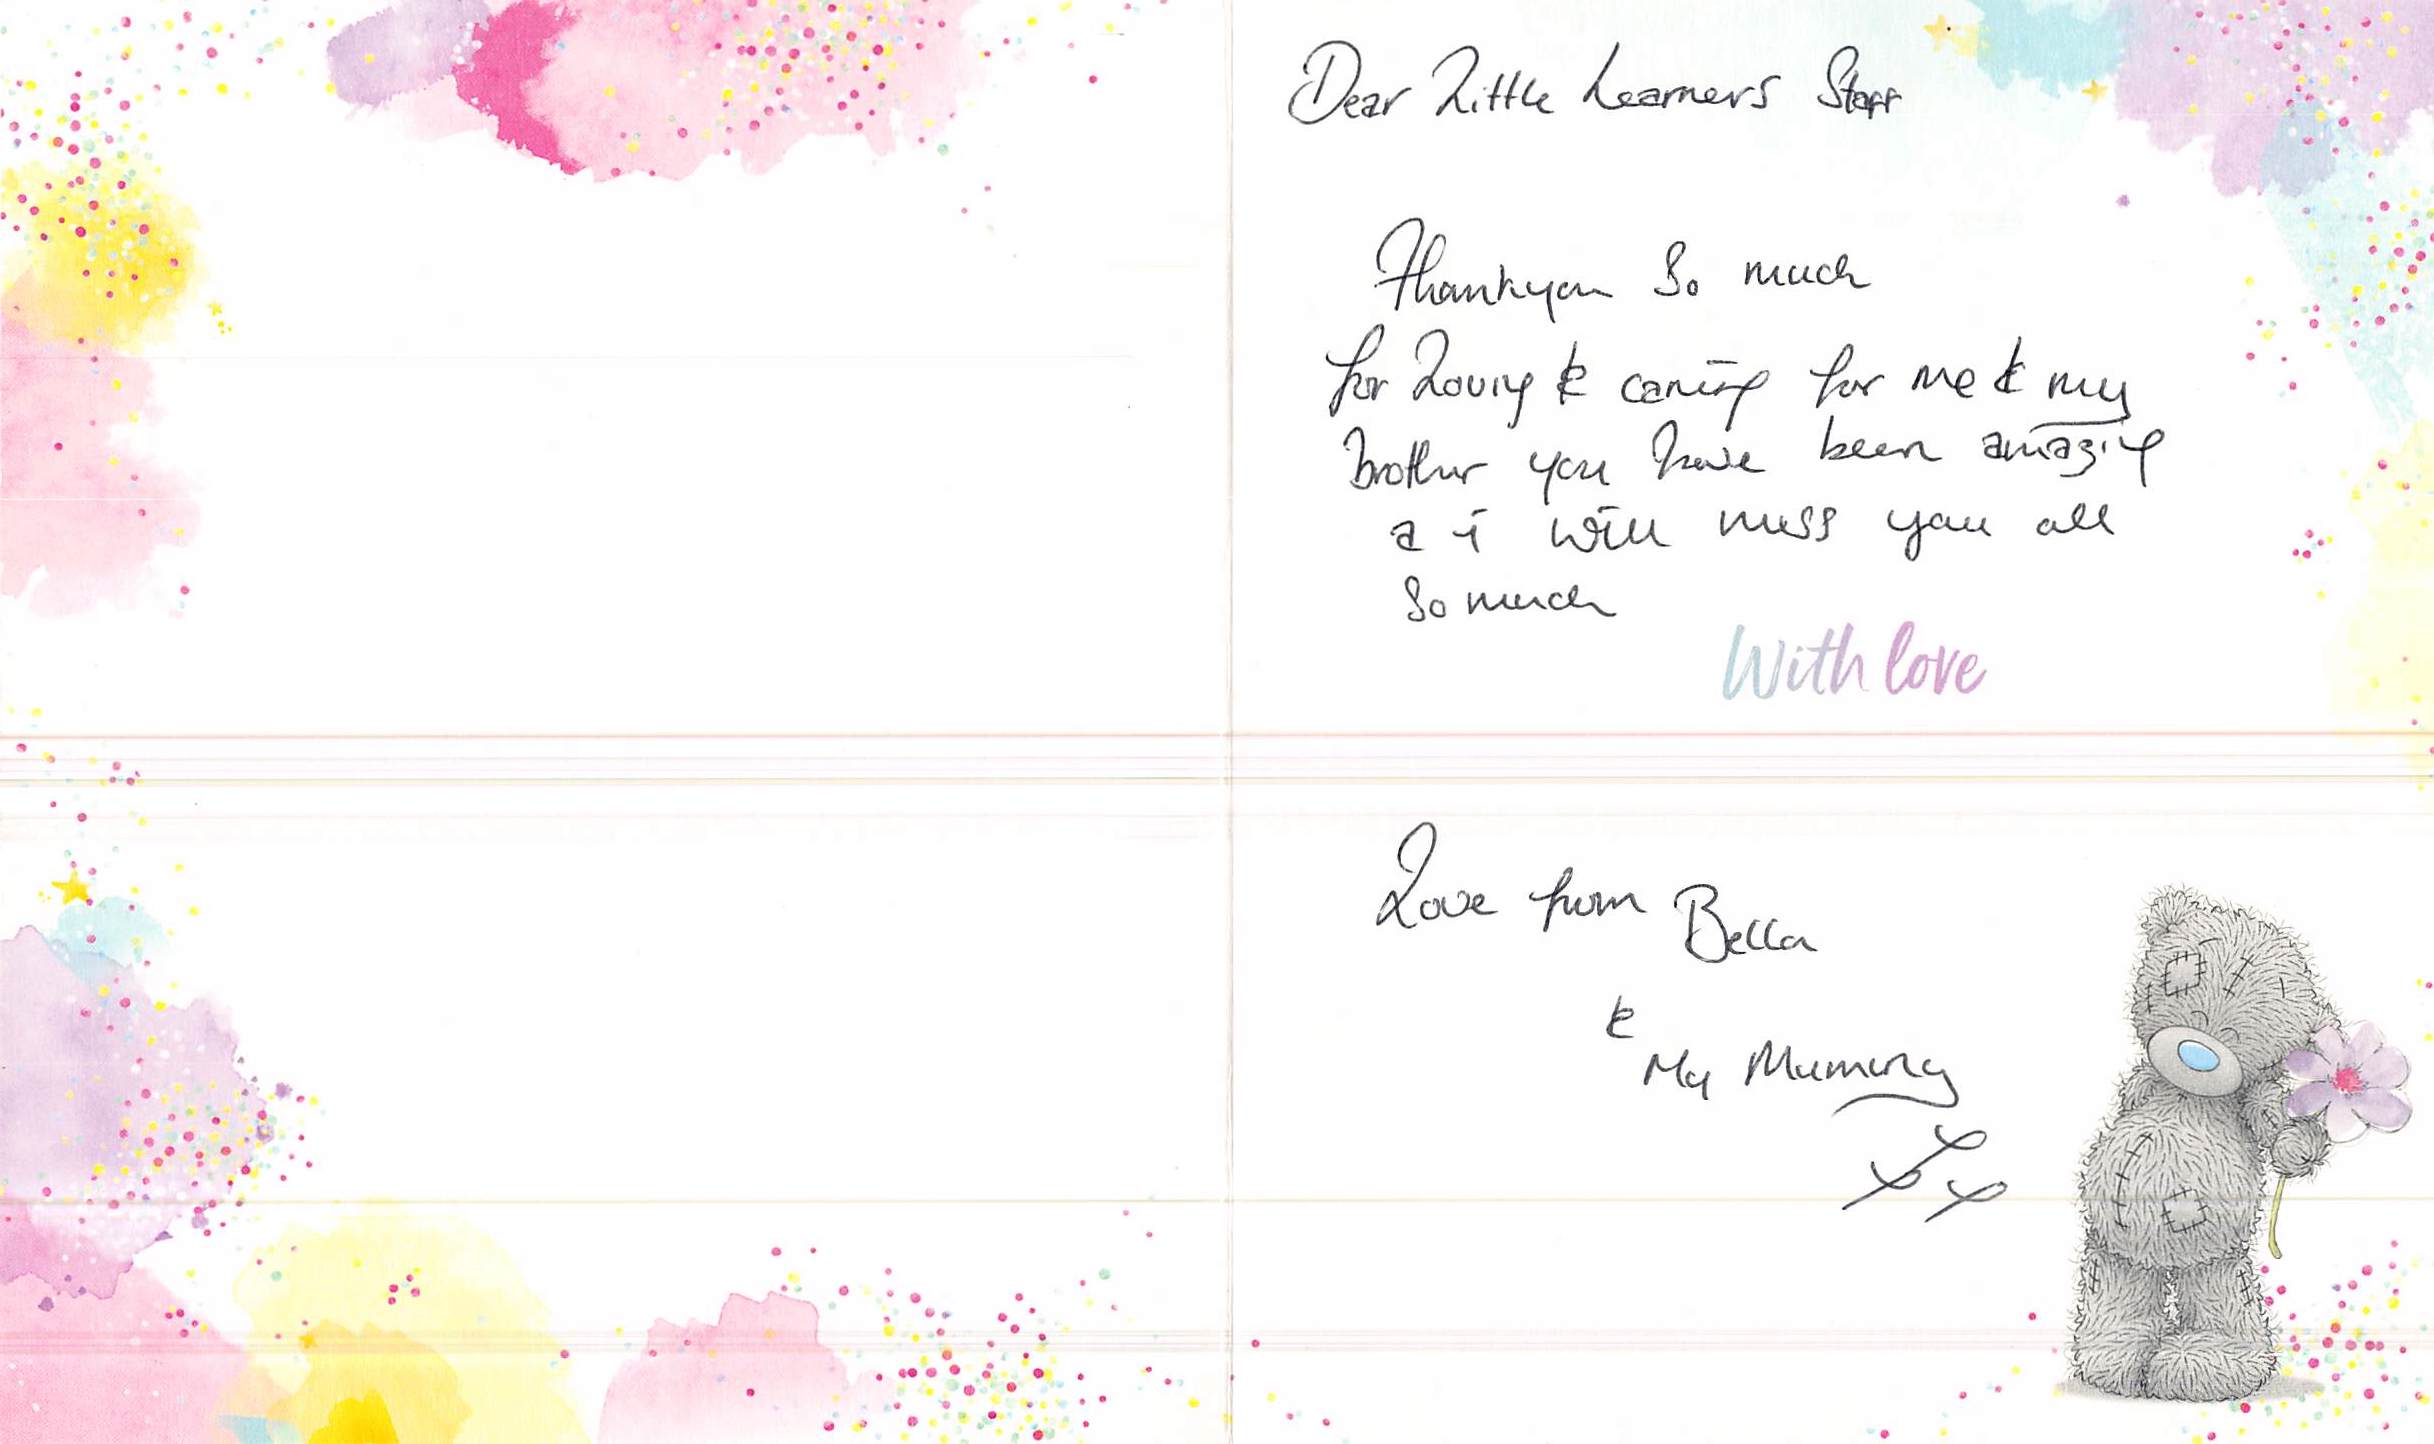 Dear Little Learners Staff
Thankyou So much
for Loving & caring for me & my
brother you have been amazing
a i will miss you all
So much
With love
Love from Bella
&
My Mummy
xxx